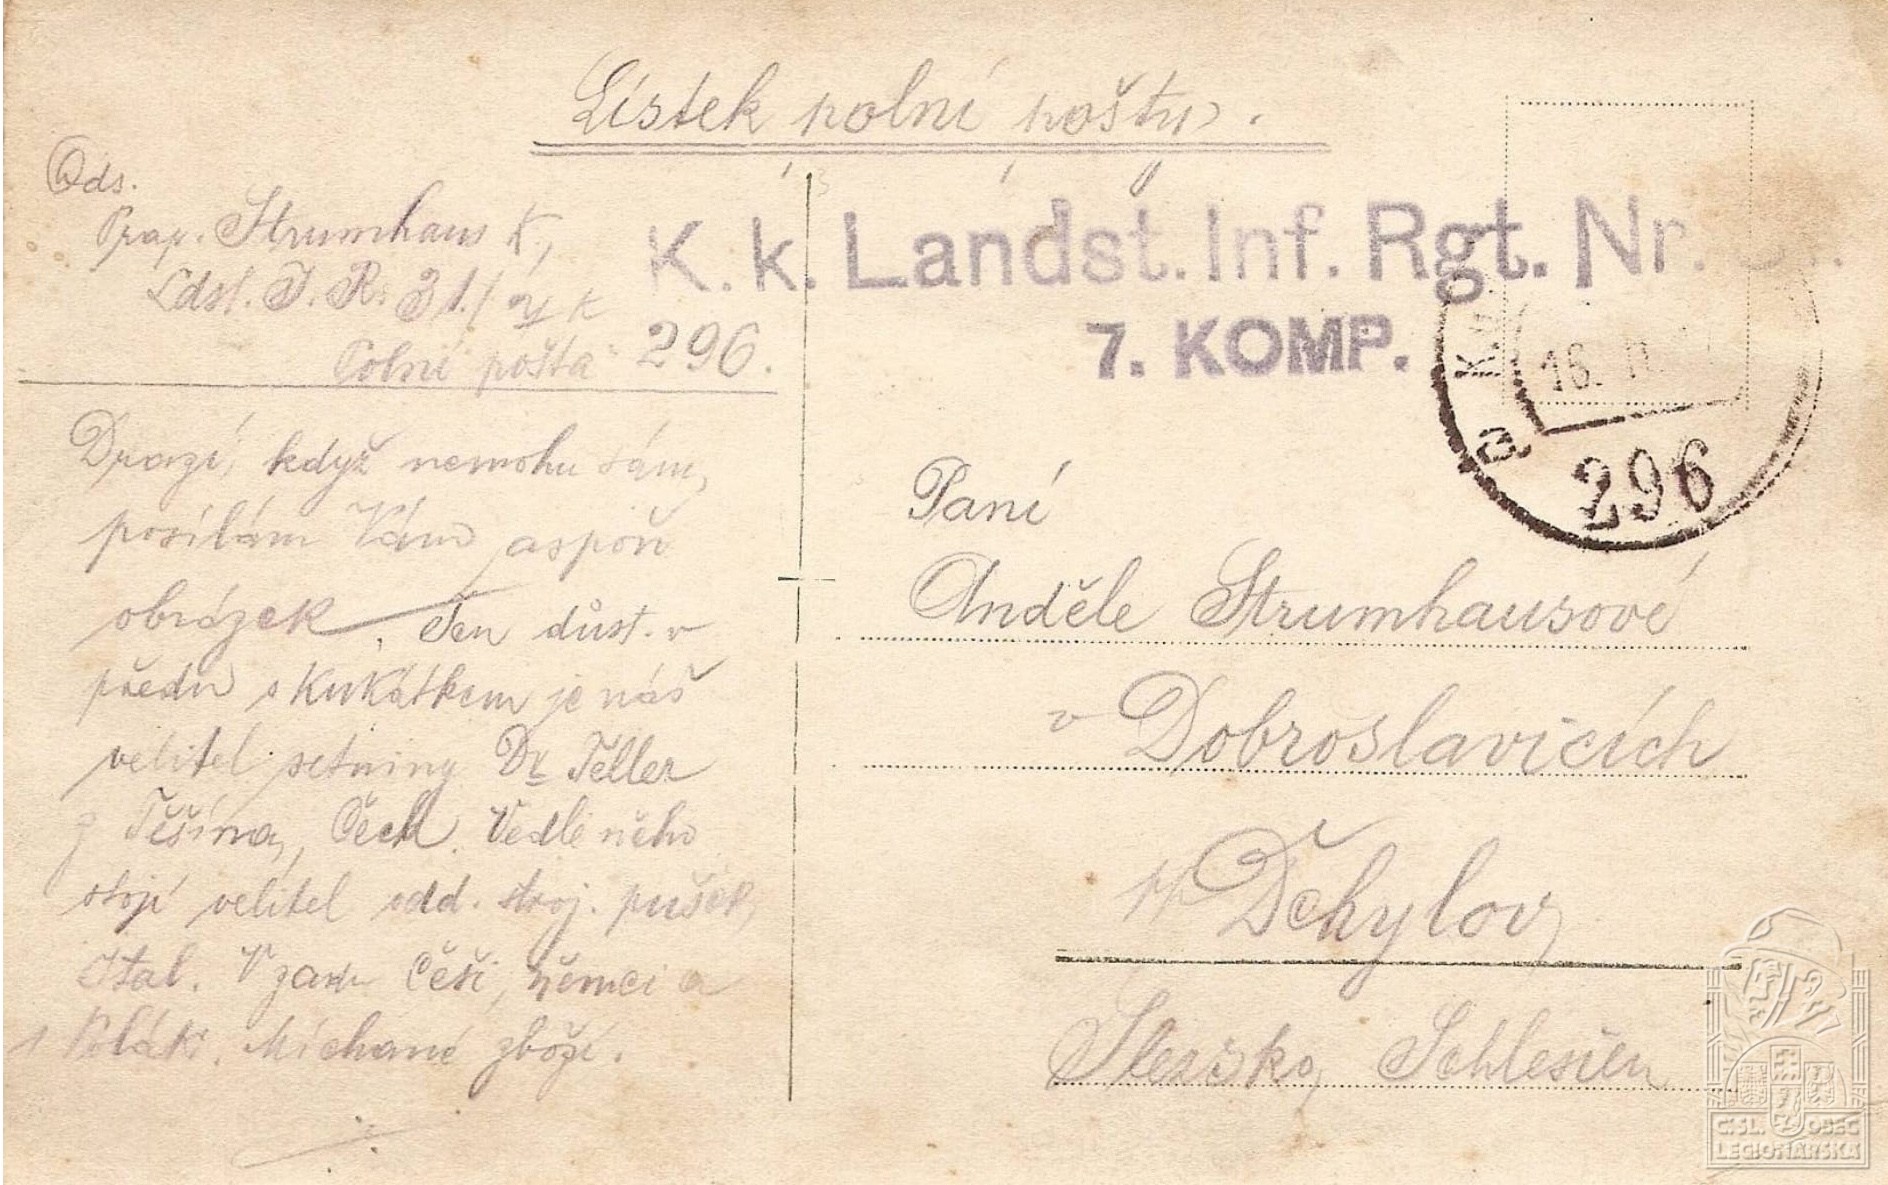 Lístek polní pošty.
Ods.
Prap. Strumhaus K.,
Ldst. I. R. 31./ K
Polní pošta 296.
K.k. Landst. Inf. Rgt. Nr.
7. KOMP.
K.u.
16.
a
296
Drazí, když nemohu sám,
posílám Vám aspoň
obrázek. Ten důst. v
předu s kukátkem je náš
velitel setniny Dr Teller
z Těšína, Čech. Vedle něho
stojí velitel odd. stroj. pušek,
Ital. V zadu Češi, němci a
Poláki. Míchané zboží.
Paní
Anděle Strumhausové
v Dobroslavicích
pp Děhylov
Slezsko, Schlesien
Č.SL. OBEC
LEGIONÁŘSKÁ